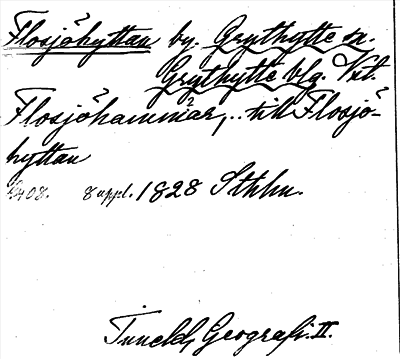 Flosjöhyttan by. Grythytte sn.
Grythytte blg. Vst.
Flosjöhammar, .. till Flosjö-
hyttan
s. 408. 8 uppl. 1828 Sthlm.
Tuneld, Geografi. II.